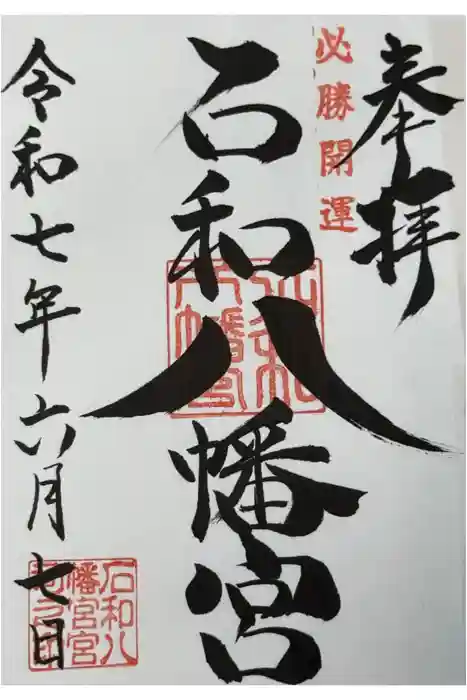 奉拝
必勝開運
石和八幡宮
石和八幡宮
令和七年六月七日
石和八
幡宮宮